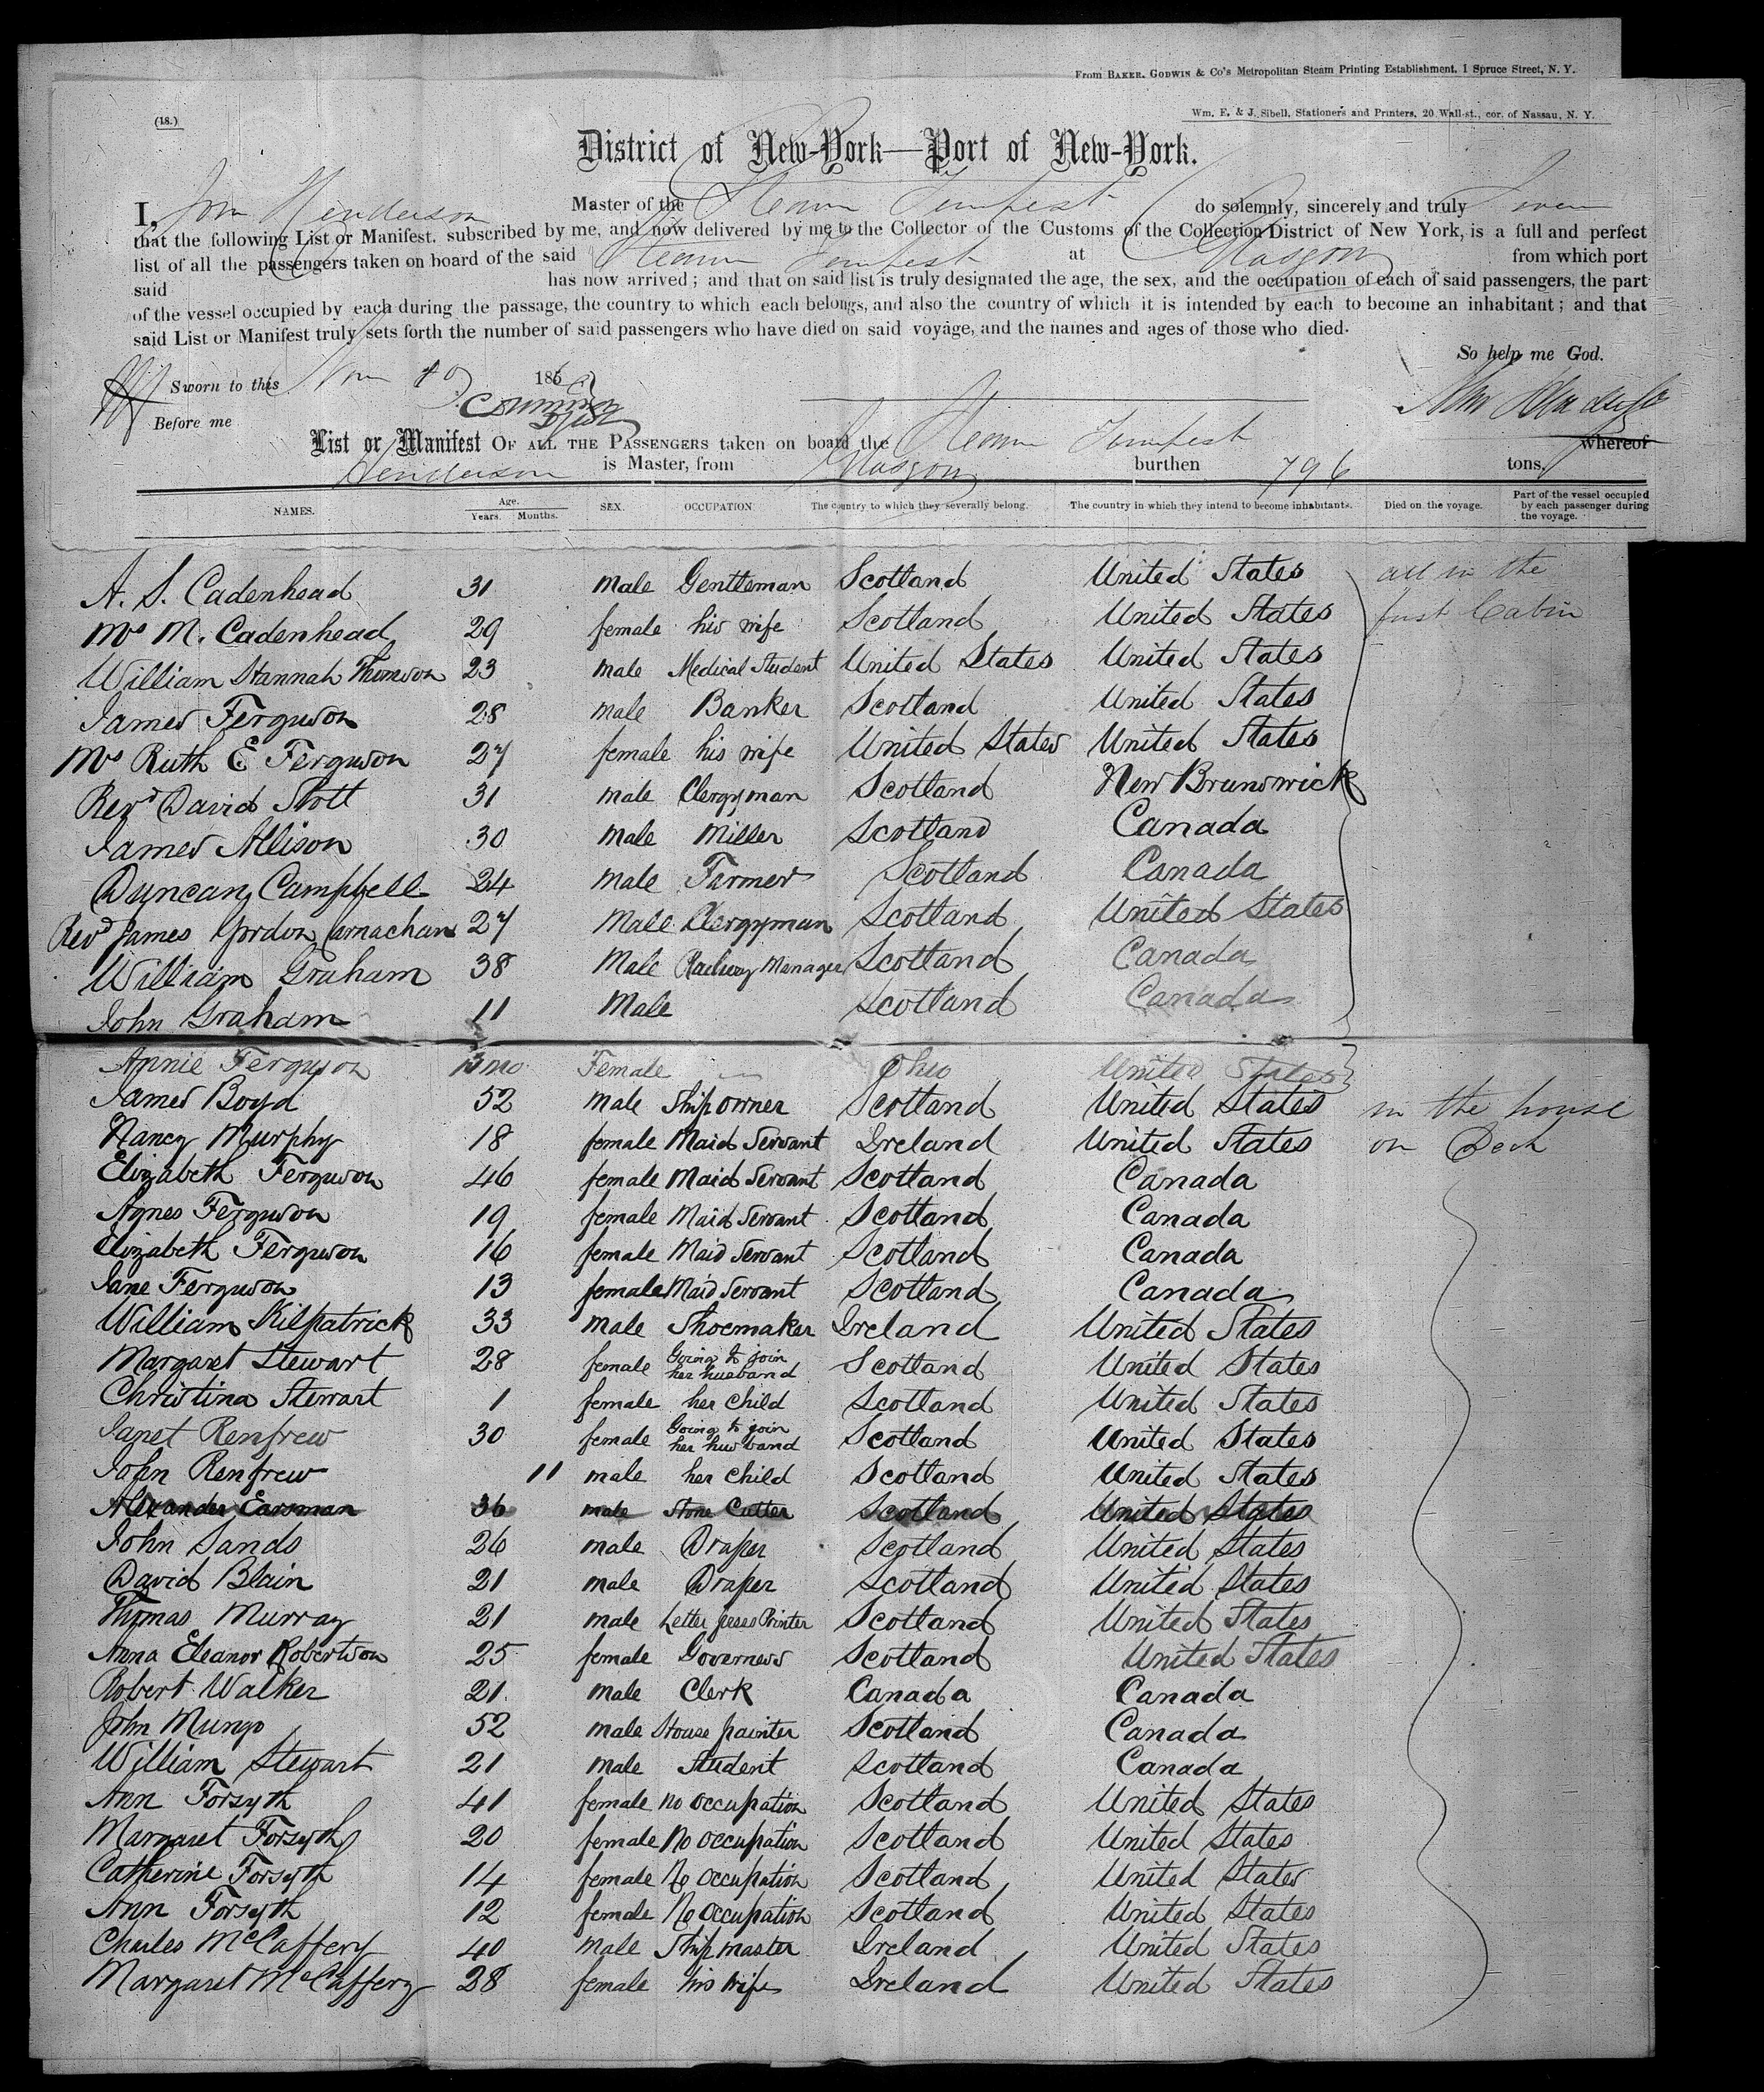 From BAKER, GODWIN & Co's Metropolitan Steam Printing Establishment, 1 Spruce Street, N. Y.
(18.)
Wm. E. & J. Sibell, Stationers and Printers, 20 Wall-st., cor. of Nassau, N. Y.
District of New-York—Port of New-York.
I, John Henderson Master of the Steamer Tempest do solemnly, sincerely and truly swear
that the following List or Manifest, subscribed by me, and now delivered by me to the Collector of the Customs of the Collection District of New York, is a full and perfect
list of all the passengers taken on board of the said Steamer Tempest at Glasgow from which port
said has now arrived; and that on said list is truly designated the age, the sex, and the occupation of each of said passengers, the part
of the vessel occupied by each during the passage, the country to which each belongs, and also the country of which it is intended by each to become an inhabitant; and that
said List or Manifest truly sets forth the number of said passengers who have died on said voyage, and the names and ages of those who died.
So help me God.
Sworn to this 185
Before me
List or Manifest OF ALL THE PASSENGERS taken on board the Steamer Tempest whereof
Henderson is Master, from Glasgow burthen 796 tons.
NAMES. Age. Years. Months. SEX. OCCUPATION The country to which they severally belong. The country in which they intend to become inhabitants. Died on the voyage. Part of the vessel occupied by each passenger during the voyage.
A. S. Cadenhead 31 male Gentleman Scotland United States all in the
Mrs M. Cadenhead 29 female his wife Scotland United States first Cabin
William Hannah Thomson 23 male Medical Student United States United States
James Ferguson 28 male Banker Scotland United States
Mrs Ruth E Ferguson 27 female his wife United States United States
Revd David Stott 31 male Clergyman Scotland New Brunswick
James Allison 30 male Miller Scotland Canada
Duncan Campbell 24 male Farmer Scotland Canada
Revd James Gordon Carnachan 27 Male Clergyman Scotland United States
William Graham 38 Male Railway Manager Scotland Canada
John Graham 11 Male Scotland Canada
Annie Ferguson 13 mo Female — Ohio United States
James Boyd 52 male Ship owner Scotland United States in the house
Nancy Murphy 18 female Maid Servant Ireland United States on Deck
Elizabeth Ferguson 46 female Maid Servant Scotland Canada
Agnes Ferguson 19 female Maid Servant Scotland Canada
Elizabeth Ferguson 16 female Maid Servant Scotland Canada
Jane Ferguson 13 female Maid Servant Scotland Canada
William Kilpatrick 33 male Shoemaker Ireland United States
Margaret Stewart 28 female Going to join her husband Scotland United States
Christina Stewart 1 female her child Scotland United States
Janet Renfrew 30 female Going to join her husband Scotland United States
John Renfrew 11 male her child Scotland United States
Alexander Earsman 36 male Stone Cutter Scotland United States
John Sands 26 male Draper Scotland United States
David Blain 21 male Draper Scotland United States
Thomas Murray 21 male Letter press Printer Scotland United States
Anna Eleanor Robertson 25 female Governess Scotland United States
Robert Walker 21 male Clerk Canada Canada
John Mungo 52 male House painter Scotland Canada
William Stewart 21 male Student Scotland Canada
Ann Forsyth 41 female no occupation Scotland United States
Margaret Forsyth 20 female No occupation Scotland United States
Catherine Forsyth 14 female No occupation Scotland United States
Ann Forsyth 12 female No occupation Scotland United States
Charles McCaffery 40 male Ship master Ireland United States
Margaret McCaffery 28 female his wife Ireland United States